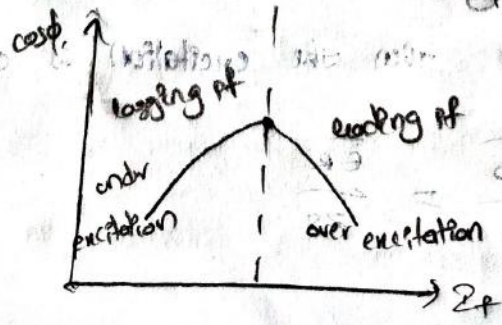 cosφ
lagging pf
leading pf
under
excitation
over excitation
If